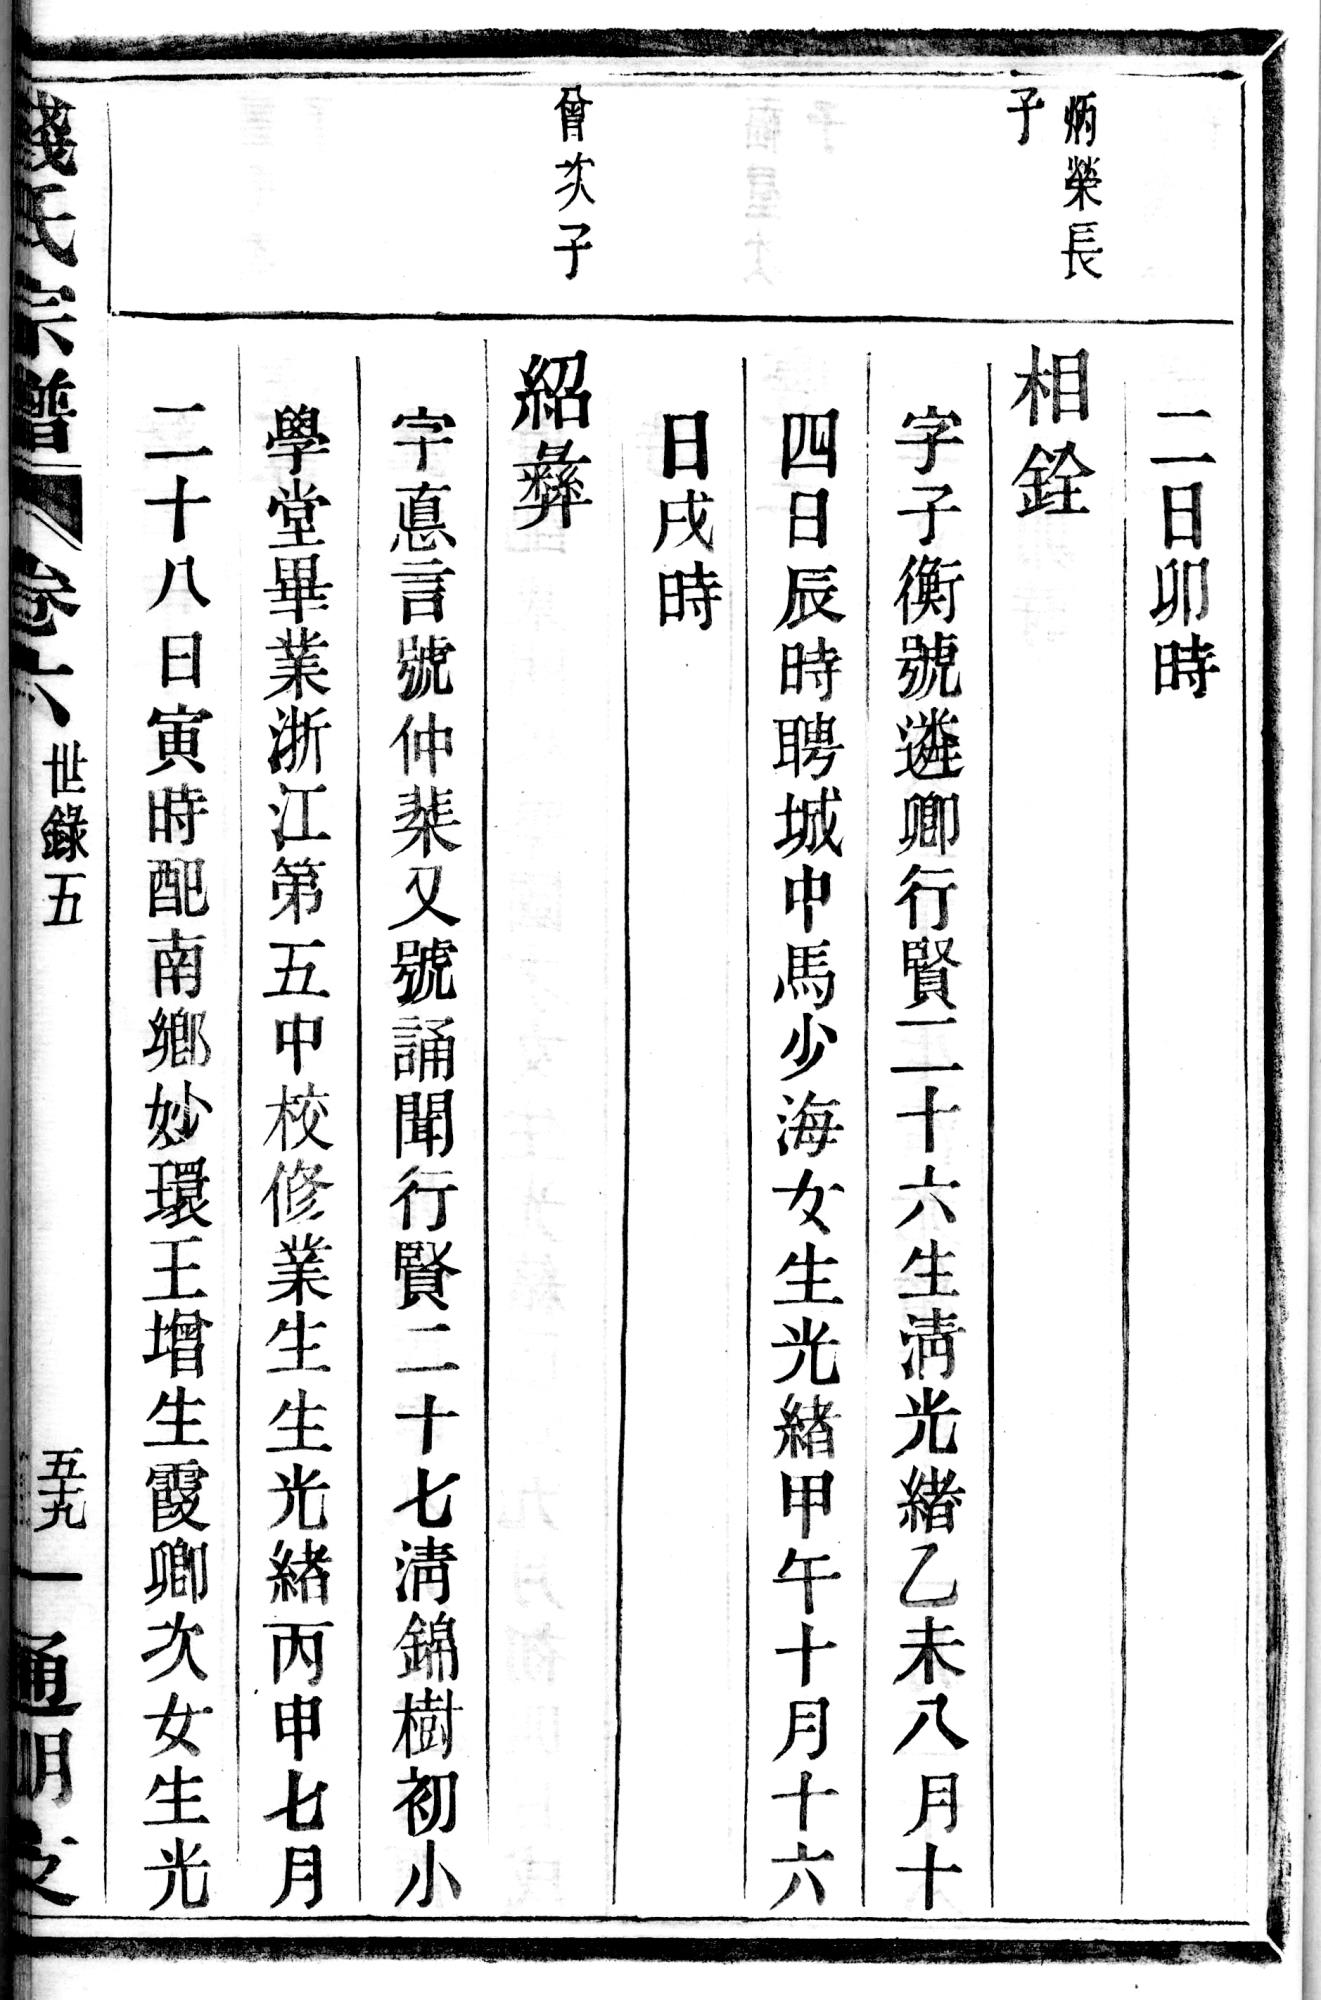 二日卯時
炳榮長
子
相銓
字子衡號遴卿行賢二十六生淸光緒乙未八月十
四日辰時聘城中馬少海女生光緒甲午十月十六
日戌時
曾次子
紹彝
字惪言號仲棐又號誦聞行賢二十七淸錦樹初小
學堂畢業浙江第五中校修業生生光緒丙申七月
二十八日寅時配南鄉妙環王增生霞卿次女生光
錢氏宗譜 卷六 世錄五 五十九 通明支